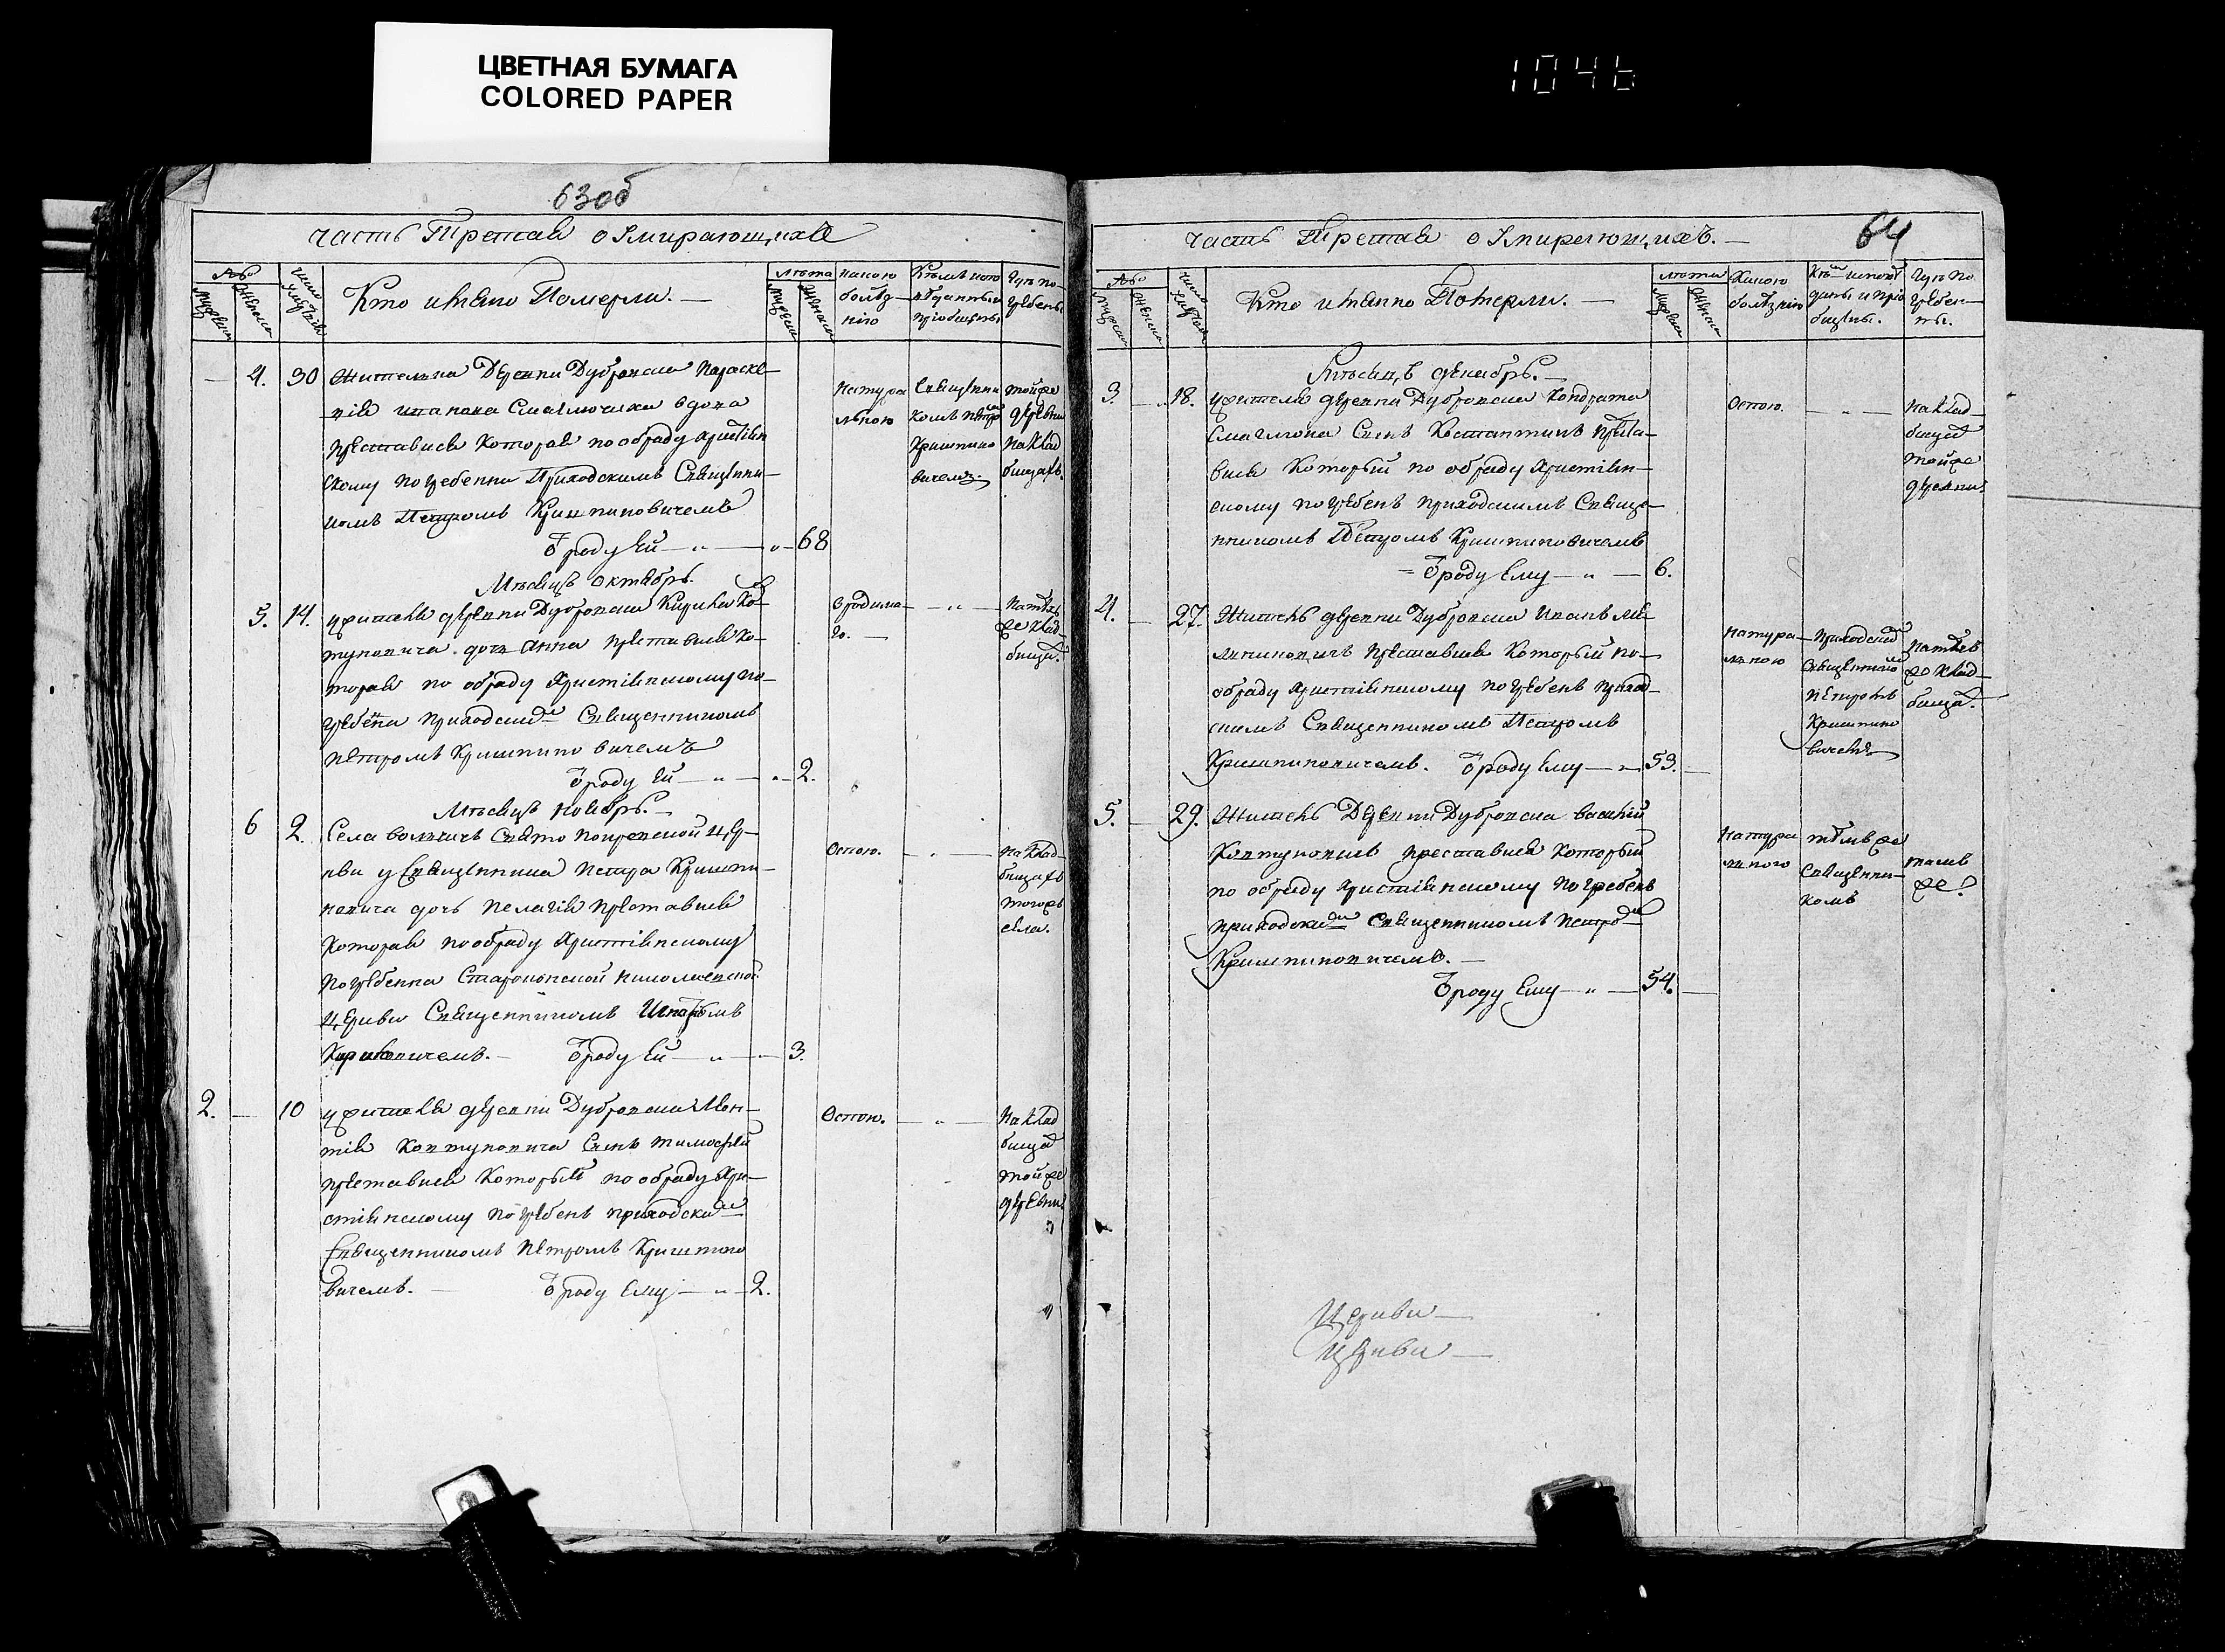 ЦВЕТНАЯ БУМАГА
COLORED PAPER
1046
63об
Часть Третая о Умирающихъ
№
Мужеска
Женска
Число умертвія
Кто именно Померли.
лѣта
Мужеска
Женска
какою
болѣз-
нію
Кѣмъ испо
вѣданы и
пріобщены
Гдѣ по-
гребены
4. 30 Жителька Деревни Дубровска Параске-
вія
вдова
преставися Которая по обряду христіан
скому погребенна Приходскимъ Священни-
комъ Петромъ Кришпиновичемъ
Ѿ роду Ей — 68
натура
лною
Священни
комъ Петро
Кришпино
вичемъ
тойже
деревни
на Клад
бищахъ.
Мѣсяцъ октябрь.
5. 14. жителя деревни Дубровска Кирила Ко-
втуновича дочь Анна преставися Ко-
торая по обряду Христіанскому по-
гребена приходски Священникомъ
Петромъ Кришпиновичемъ
Ѿ роду Ей — 2.
Ѿ родима-
го.
на тѣхъ
же клад
бища.
Мѣсяцъ ноябрь.
6 2. Села Свято Покровской Цер-
кви у Священника Петра Кришпи-
новича дочь Пелагія преставися
Которая по обряду Христіанскому
погребенна Николаевской
Церкви Священникомъ
Ѿ роду Ей — 3.
Оспою.
на клад
бищахъ
тогожъ
села.
2. 10 жителя деревни Дубровска Леон-
тія Ковтуновича Сынъ Тимофей
преставися Который по обряду Хри-
стіанскому погребенъ приходски
Священникомъ Петромъ Кришпино
вичемъ. Ѿ роду Ему — 2.
Оспою.
на клад
бища
тойже
деревни
64
Часть Третая о Умирающихъ.
№
Мужеска
Женска
Число умертвія
Кто именно Померли.
лѣта
Мужеска
Женска
Какою
болѣзнію
Кѣмъ исповѣ
даны и пріо
бщены.
Гдѣ По
гребен-
ны.
Мѣсяцъ декабрь.
3. 18. жителя деревни Дубровска Кондрата
Сынъ Костантинъ преста-
вися Который по обряду Христіан-
скому погребенъ приходскимъ Свяще-
нникомъ Петромъ Кришпиновичемъ
Ѿ роду Ему — 6.
Оспою.
на Клад-
бища
тойже
деревни
4. 27. Житель деревни Дубровска Иванъ
преставися Который по-
обряду Христіанскому погребенъ приход-
скимъ Священникомъ Петромъ
Кришпиновичемъ. Ѿ роду Ему — 53.
натура-
лною
Приходски
Священнико
Петромъ
Кришпино
вичемъ
на тѣхъ
же клад-
бища.
5. 29. Житель Деревни Дубровска Василій
Ковтуновичъ преставися Который
по обряду Христіанскому погребенъ
приходски Священникомъ Петро
Кришпиновичемъ.
Ѿ роду Ему — 54.
натура
лною
тѣмъ же
Священни-
комъ
тамъ
же
Церкви
Церкви